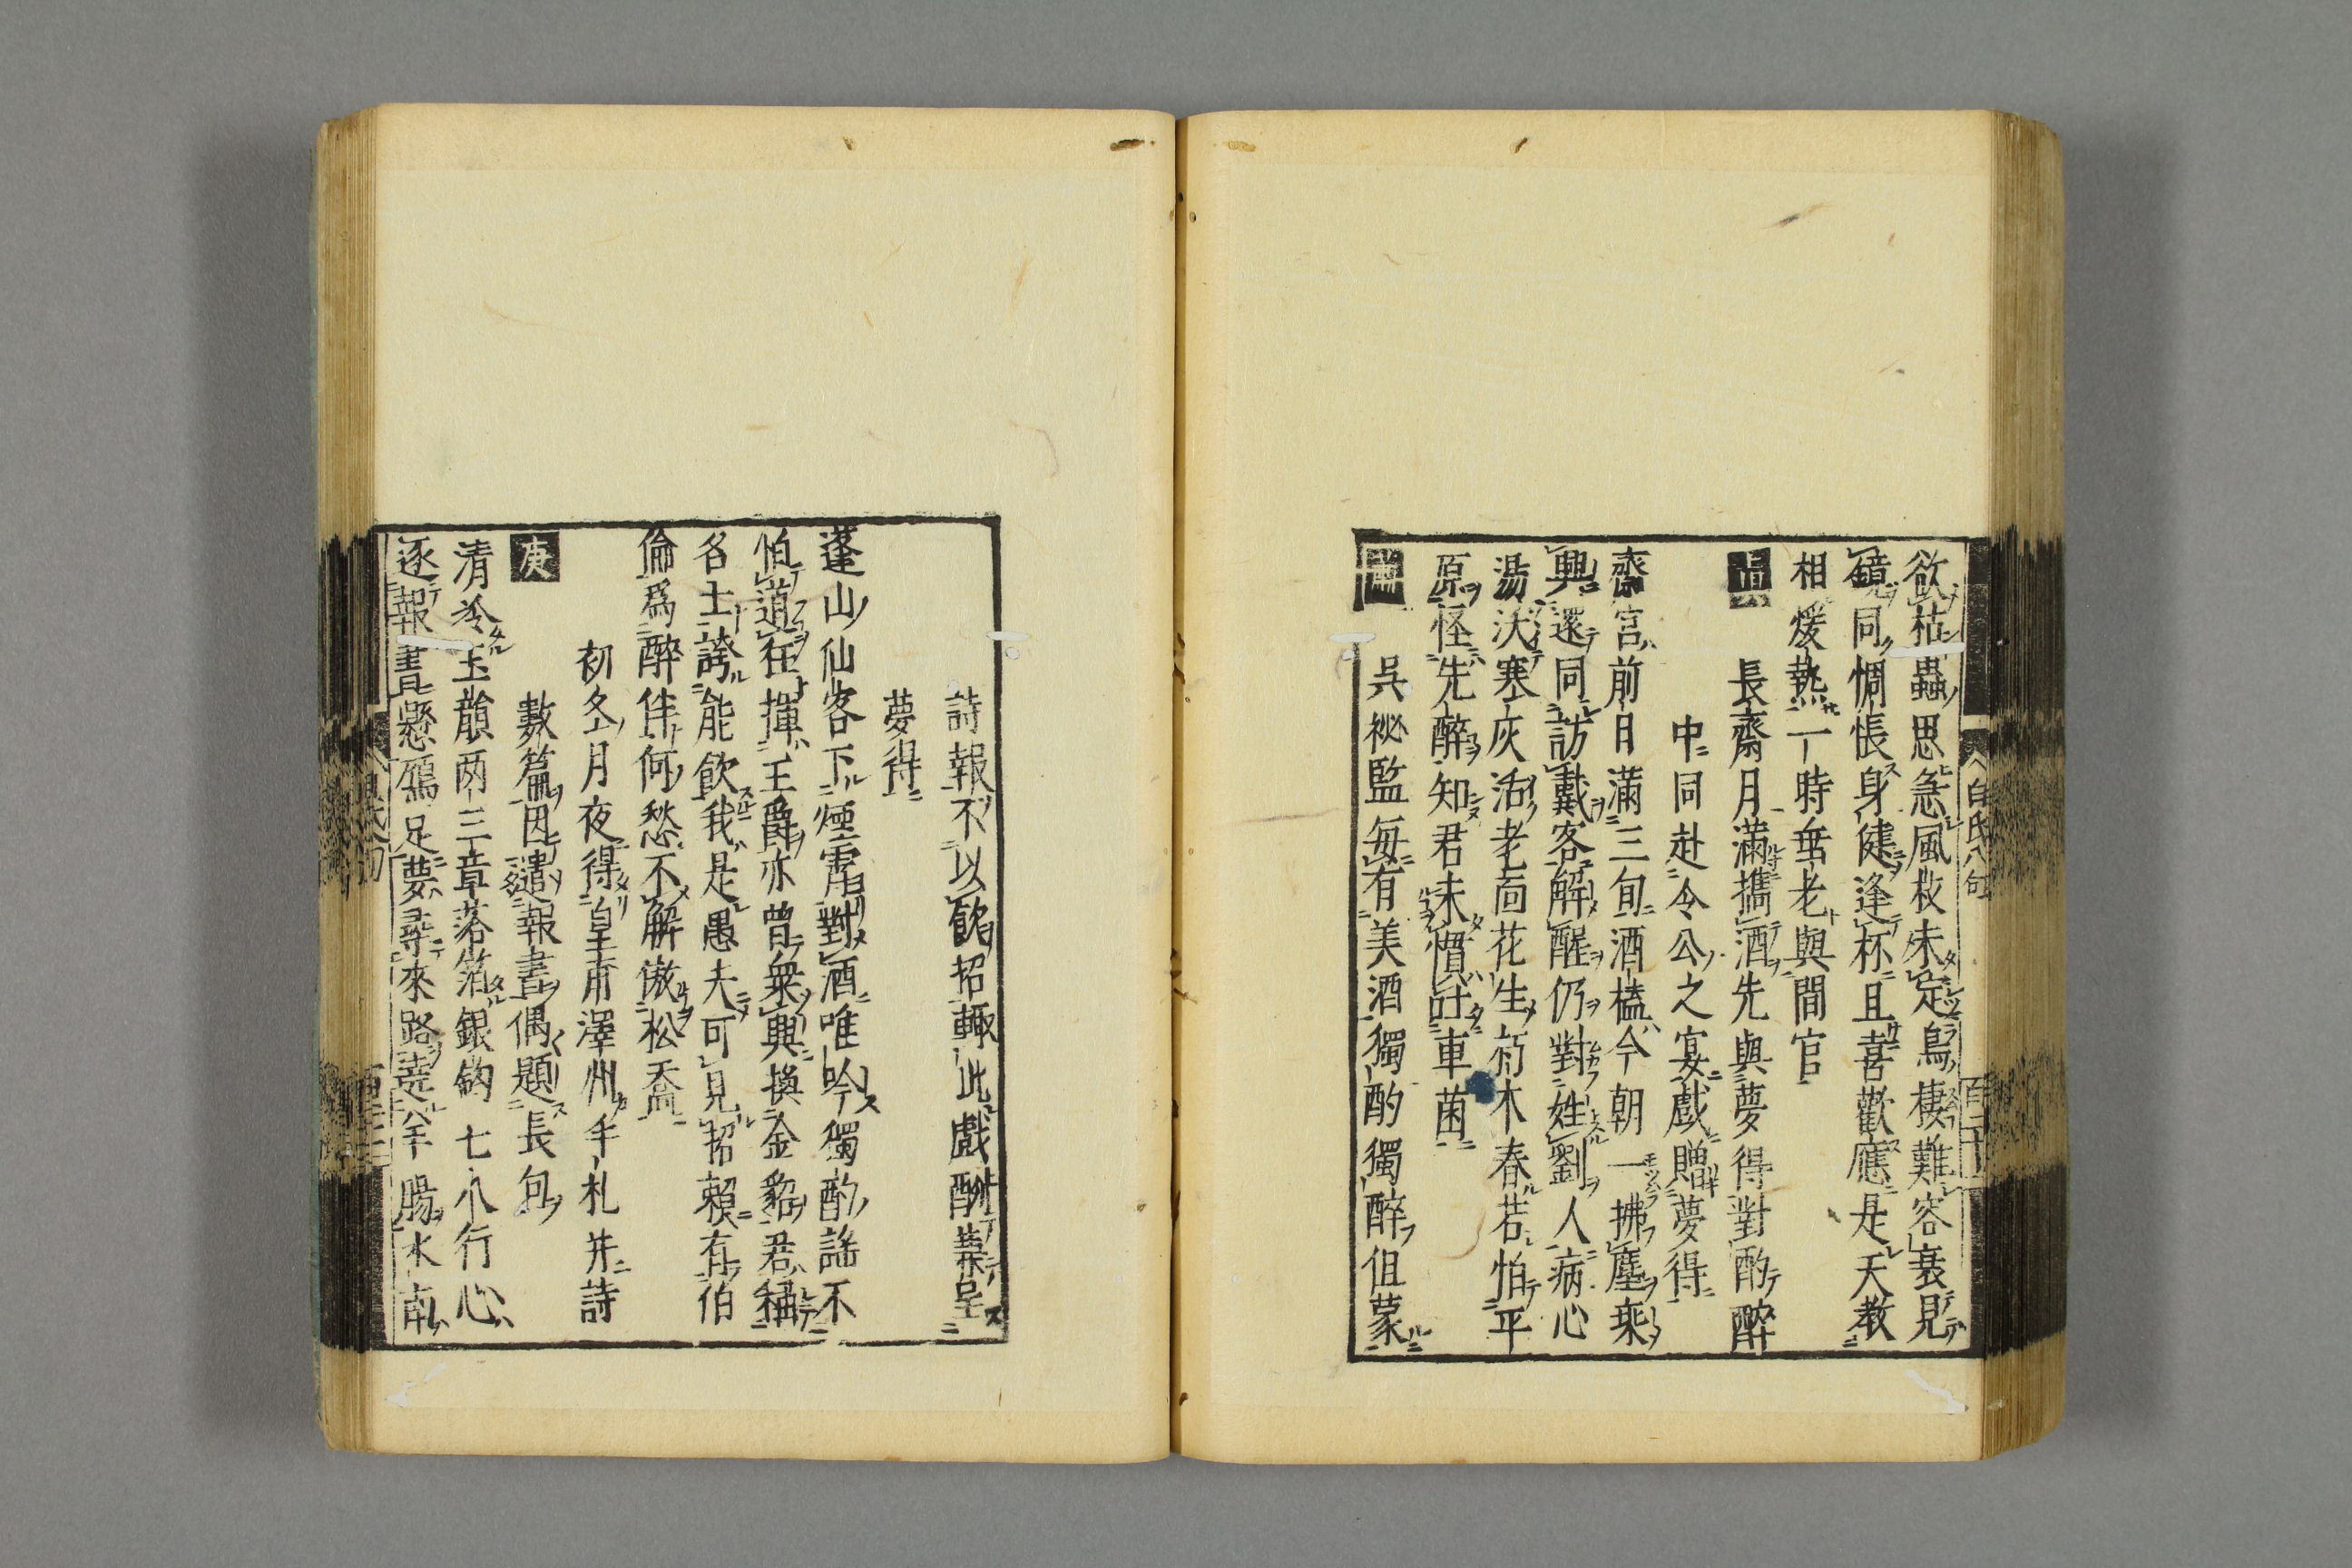 欲枯蟲思急風枝未定鳥棲難容衰見
鏡同惆悵身健逢杯且喜歡應是天教
相煖熱一時垂老與間官
長齋月滿攜酒先與夢得對酌醉
中同赴令公之宴戲贈夢得
齋宮前日滿三旬酒榼今朝一拂塵乘
興還同訪戴客解酲仍對姓劉人病心
湯沃寒灰活老面花生朽木春若怕平
原怪先醉知君未慣吐車茵
吳祕監每有美酒獨酌獨醉但蒙
白氏八句
詩報不以飲招輙此戲酬兼呈
夢得
蓬山仙客下煙霄對酒唯吟獨酌謠不
怕道狂揮玉爵亦曾乗興換金貂君稱
名士誇能飲我是愚夫可見招賴有伯
倫爲醉伴何愁不解傲松喬
初冬月夜得皇甫澤州手札并詩
庚
數篇因遣報書偶題長句
清泠玉韻两三章落箔銀鈎七八行心
逐報書懸鴈足夢尋來路遶羊腸水南